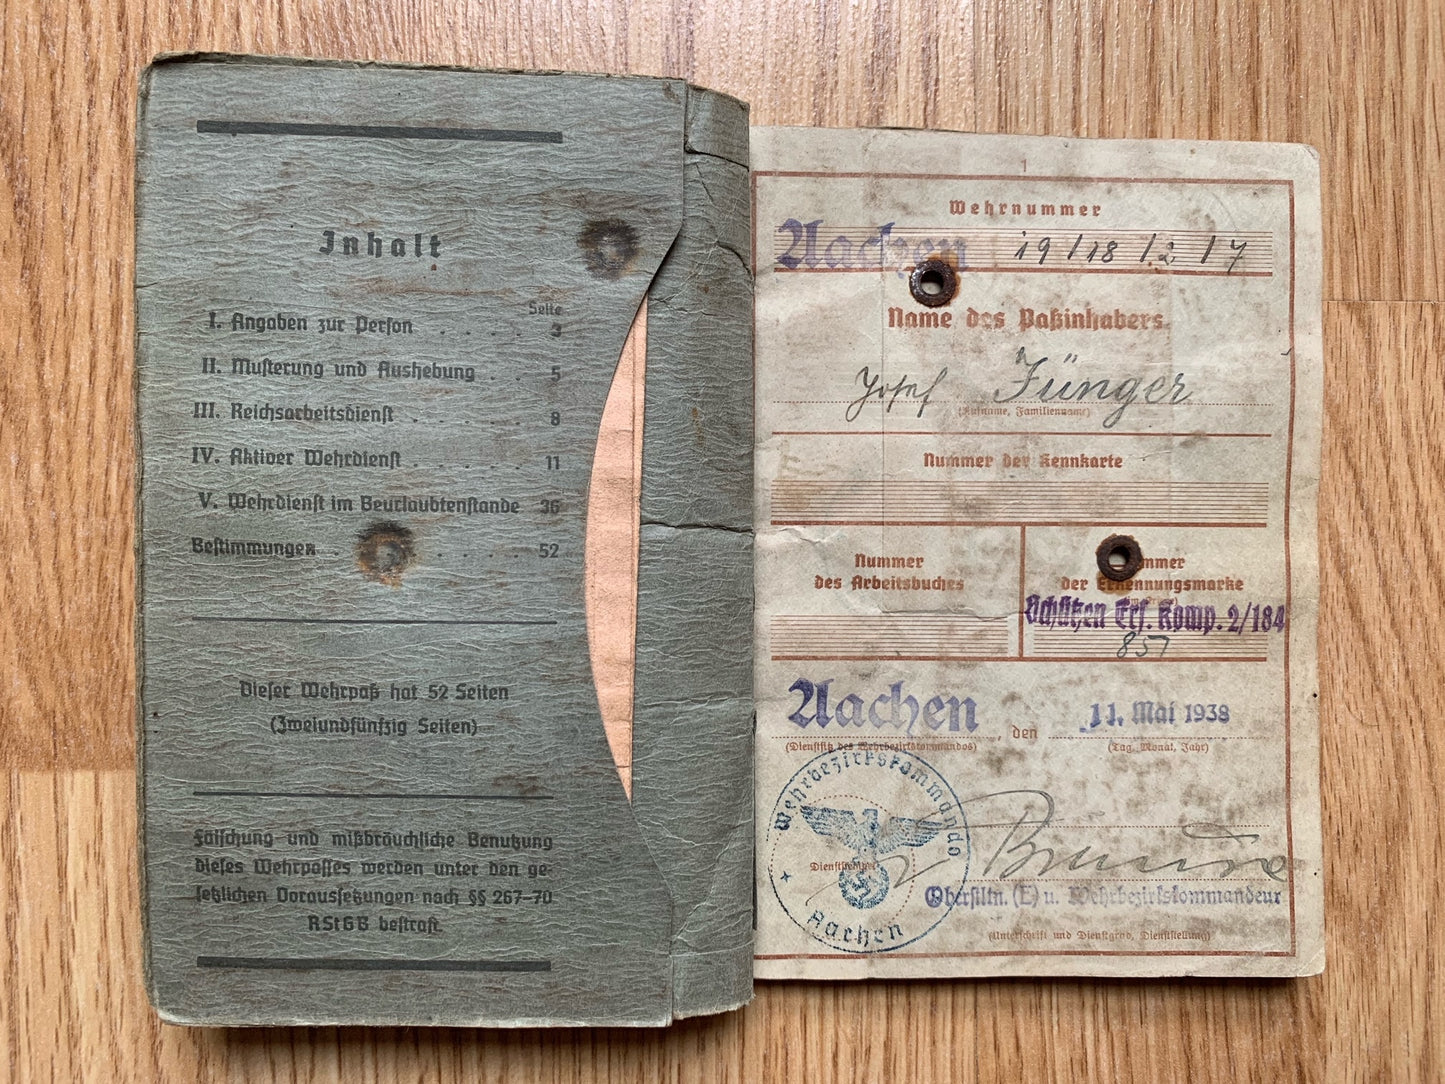 Inhalt
Seite
I. Angaben zur Person . . . . . 3
II. Musterung und Aushebung . . 5
III. Reichsarbeitsdienst . . . . . . 8
IV. Aktiver Wehrdienst . . . . . . 11
V. Wehrdienst im Beurlaubtenstande 36
Bestimmungen . . . . . . . 52
Dieser Wehrpaß hat 52 Seiten
(Zweiundfünfzig Seiten)
Fälschung und mißbräuchliche Benutzung
dieses Wehrpasses werden unter den ge-
setzlichen Voraussetzungen nach §§ 267–70
RStGB bestraft.
1
Wehrnummer
Aachen 19/18/2/7
Name des Paßinhabers.
Josef Jünger
(Rufname, Familienname)
Nummer der Kennkarte
Nummer
des Arbeitsbuches
Nummer
der Erkennungsmarke
Schützen Ers. Komp. 2/184
857
Aachen, den 11. Mai 1938
(Dienstsitz des Wehrbezirkskommandos) (Tag, Monat, Jahr)
Wehrbezirkskommando
Aachen
Oberstltn. (E) u. Wehrbezirkskommandeur
(Unterschrift und Dienstgrad, Dienststellung)